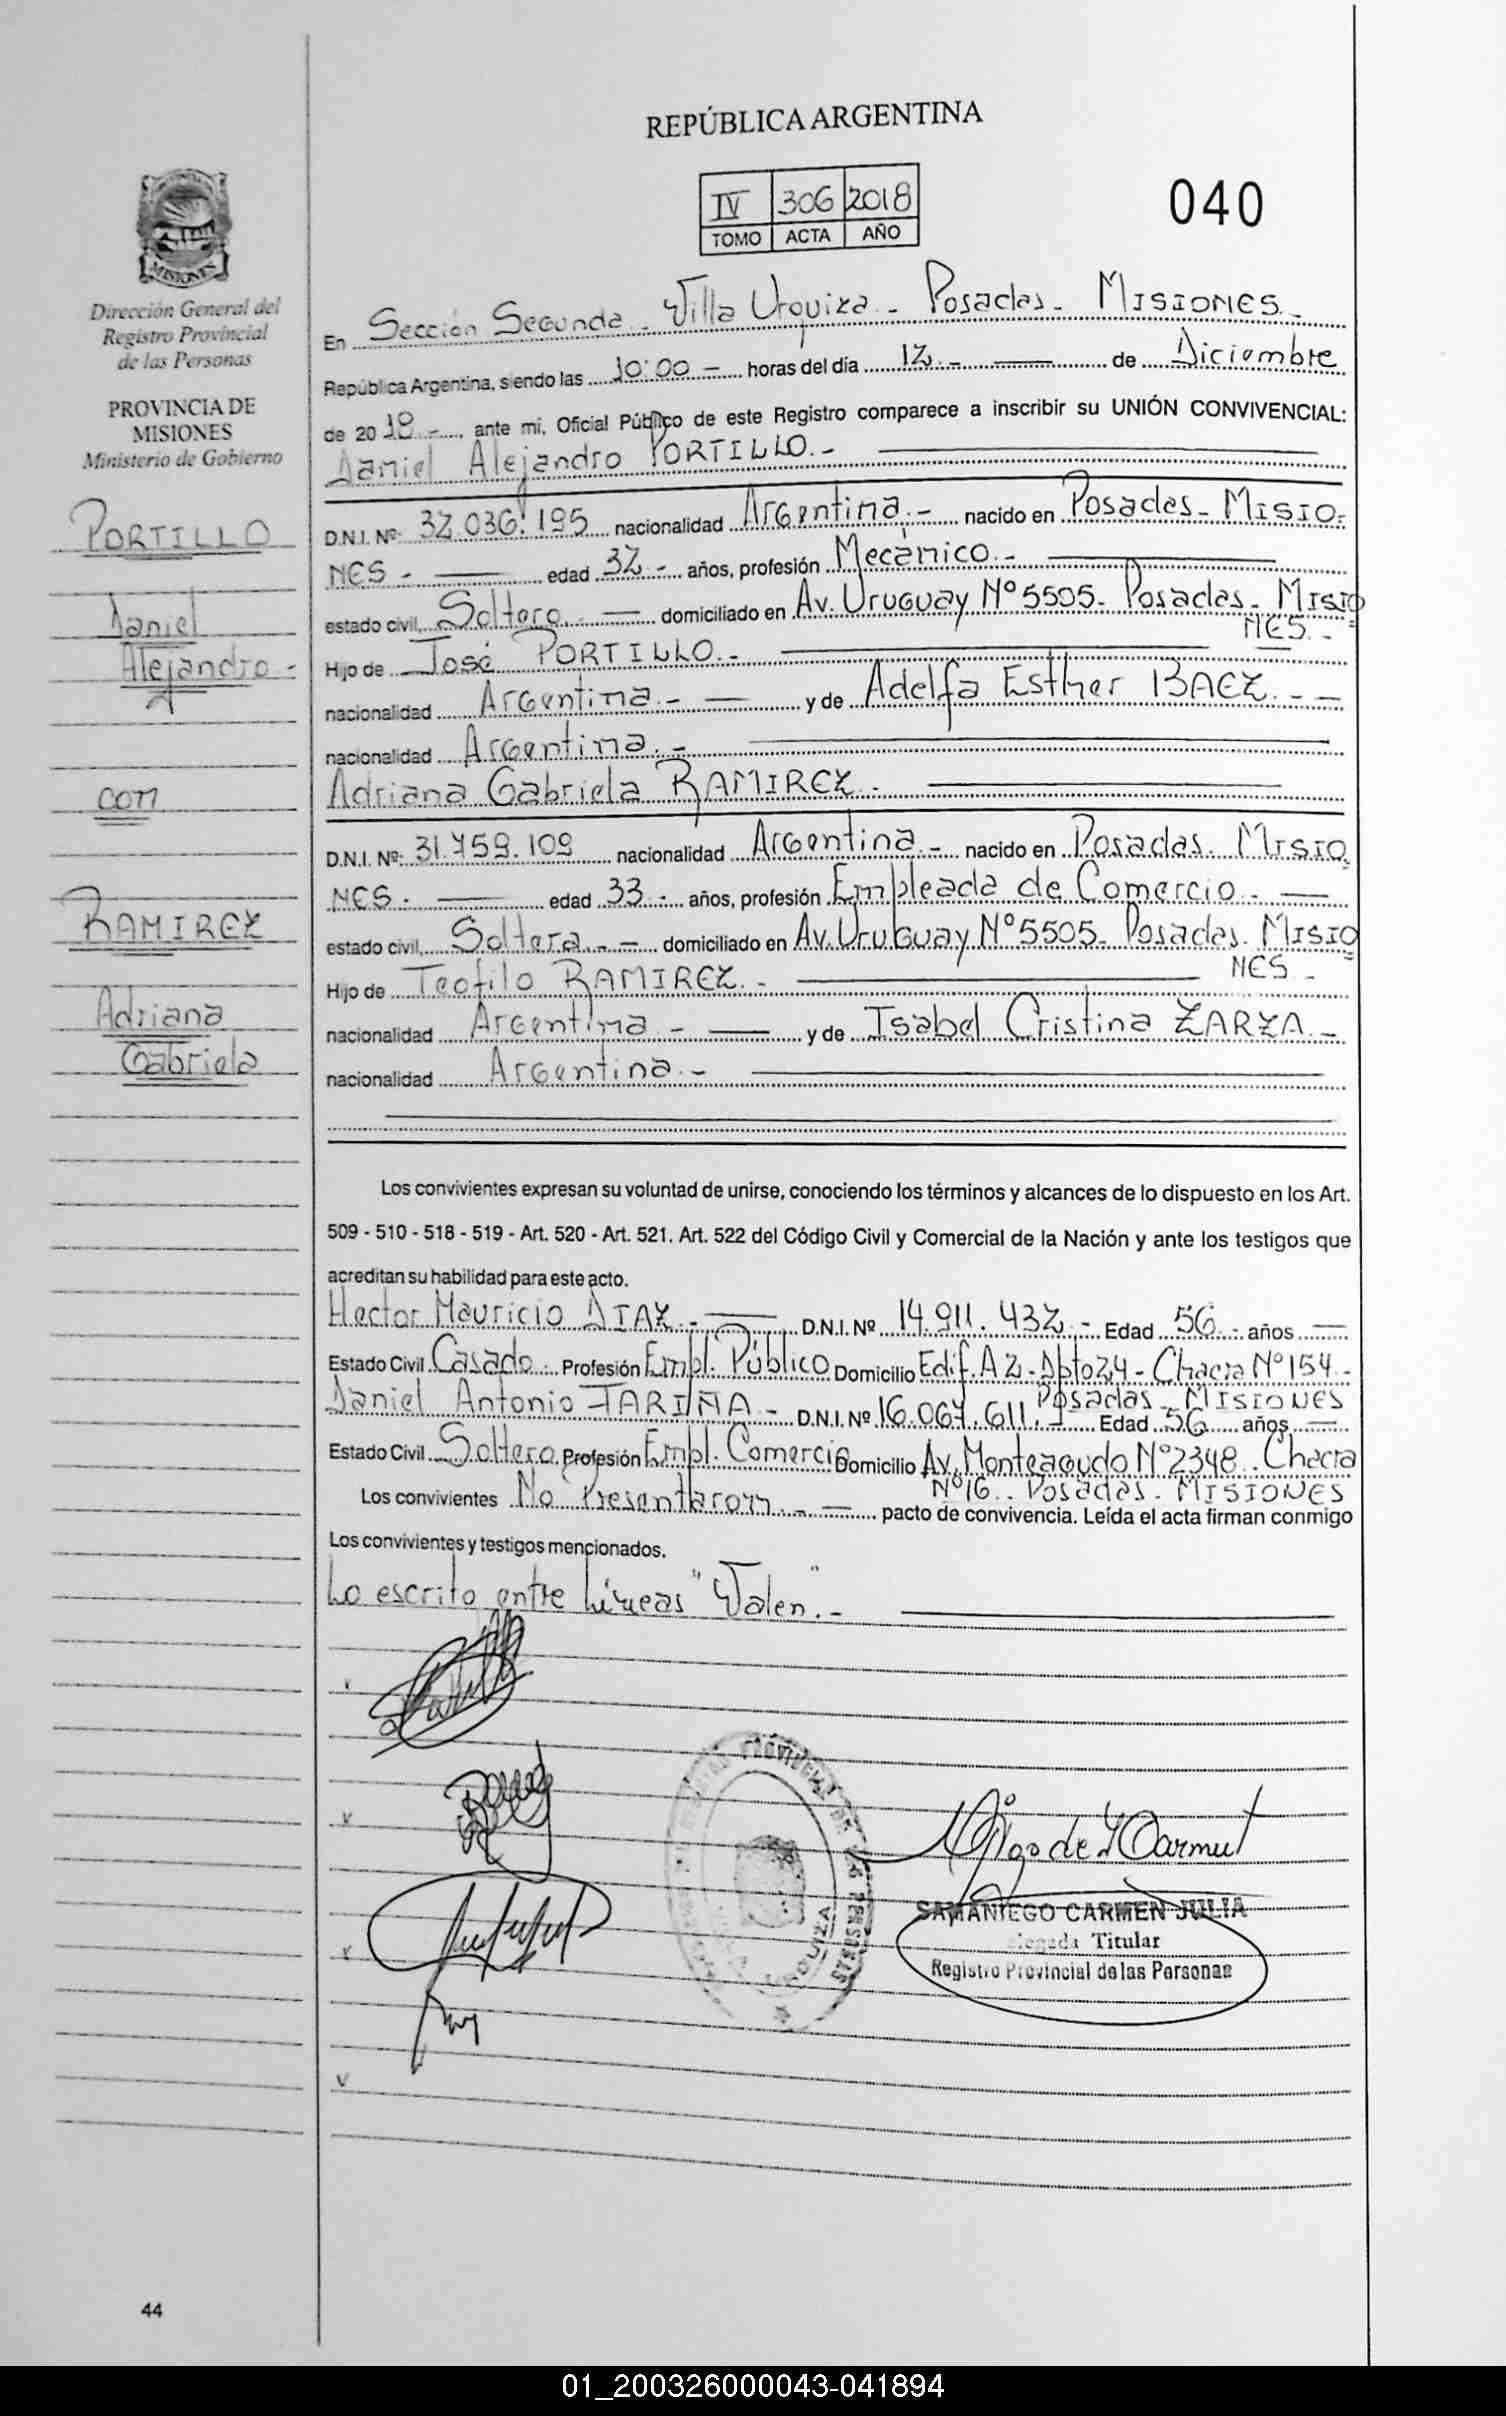 REPÚBLICA ARGENTINA
IV 306 2018
TOMO ACTA AÑO
040
MISIONES
Dirección General del
Registro Provincial
de las Personas
PROVINCIA DE
MISIONES
Ministerio de Gobierno
PORTILLO
Daniel
Alejandro -
con
RAMIREZ
Adriana
Gabriela
En Sección Segunda - Villa Urquiza - Posadas - MISIONES -
República Argentina, siendo las 10:00 - horas del día 12 - de Diciembre
de 2018 -, ante mi, Oficial Público de este Registro comparece a inscribir su UNIÓN CONVIVENCIAL:
Daniel Alejandro PORTILLO.-
D.N.I. Nº: 32.036.195 nacionalidad Argentina.- nacido en Posadas - MISIO-
NES - edad 32 - años, profesión Mecánico.-
estado civil, Soltero.- domiciliado en Av. Uruguay Nº 5505 - Posadas - MISIO
NES -
Hijo de José PORTILLO.-
nacionalidad Argentina.- y de Adelfa Esther BAEZ.-
nacionalidad Argentina.-
Adriana Gabriela RAMIREZ.-
D.N.I. Nº: 31.759.109 nacionalidad Argentina.- nacido en Posadas. MISIO
NES. edad 33 - años, profesión Empleada de Comercio.-
estado civil, Soltera.- domiciliado en Av. Uruguay Nº 5505 - Posadas. MISIO
NES -
Hijo de Teofilo RAMIREZ.-
nacionalidad Argentina - y de Isabel Cristina ZARZA.-
nacionalidad Argentina.-
Los convivientes expresan su voluntad de unirse, conociendo los términos y alcances de lo dispuesto en los Art.
509 - 510 - 518 - 519 - Art. 520 - Art. 521. Art. 522 del Código Civil y Comercial de la Nación y ante los testigos que
acreditan su habilidad para este acto.
Hector Mauricio DIAZ.- D.N.I. Nº 14.911.432.- Edad 56 - años
Estado Civil Casado.- Profesión Empl. Público Domicilio Edif. A2 - Dpto 24 - Chacra Nº 154 -
Posadas - MISIONES
Daniel Antonio FARIÑA - D.N.I. Nº 16.067.611.- Edad 56 años
Estado Civil Soltero Profesión Empl. Comercio Domicilio Av. Monteagudo Nº 2348. Chacra
Nº 16. Posadas - MISIONES
Los convivientes No Presentaron.- pacto de convivencia. Leída el acta firman conmigo
Los convivientes y testigos mencionados.
Lo escrito entre Líneas "Valen".-
SAMANIEGO CARMEN JULIA
Titular
Registro Provincial de las Personas
44
01_200326000043-041894